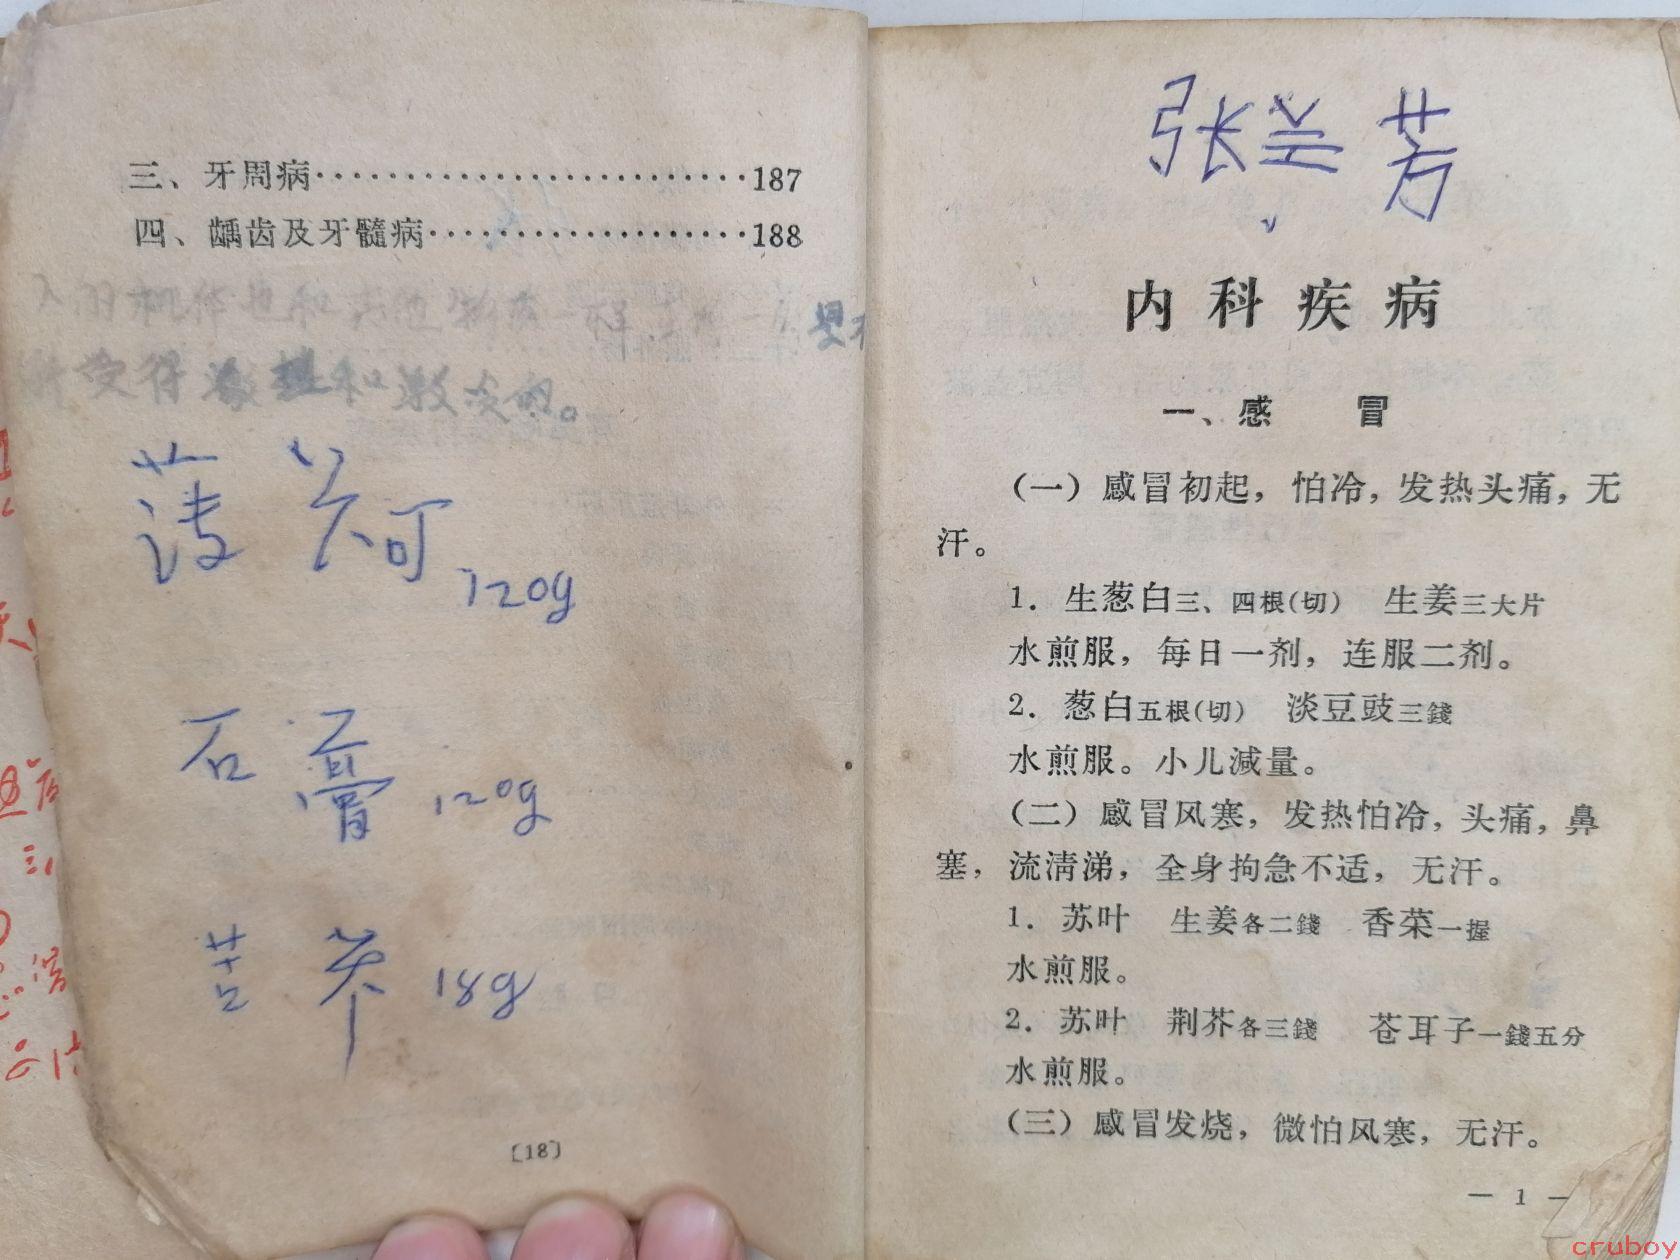 三、牙周病························187
四、龋齿及牙髓病··················188
的机体也和其他物质一样
受得 和
薄荷 120g
石膏 120g
苦 18g
[18]
张兰芳
内科疾病
一、感 冒
（一）感冒初起，怕冷，发热头痛，无
汗。
1．生葱白三、四根(切) 生姜三大片
水煎服，每日一剂，连服二剂。
2．葱白五根(切) 淡豆豉三錢
水煎服。小儿减量。
（二）感冒风寒，发热怕冷，头痛，鼻
塞，流清涕，全身拘急不适，无汗。
1．苏叶 生姜各二錢 香菜一握
水煎服。
2．苏叶 荆芥各三錢 苍耳子一錢五分
水煎服。
（三）感冒发烧，微怕风寒，无汗。
— 1 —
cruboy